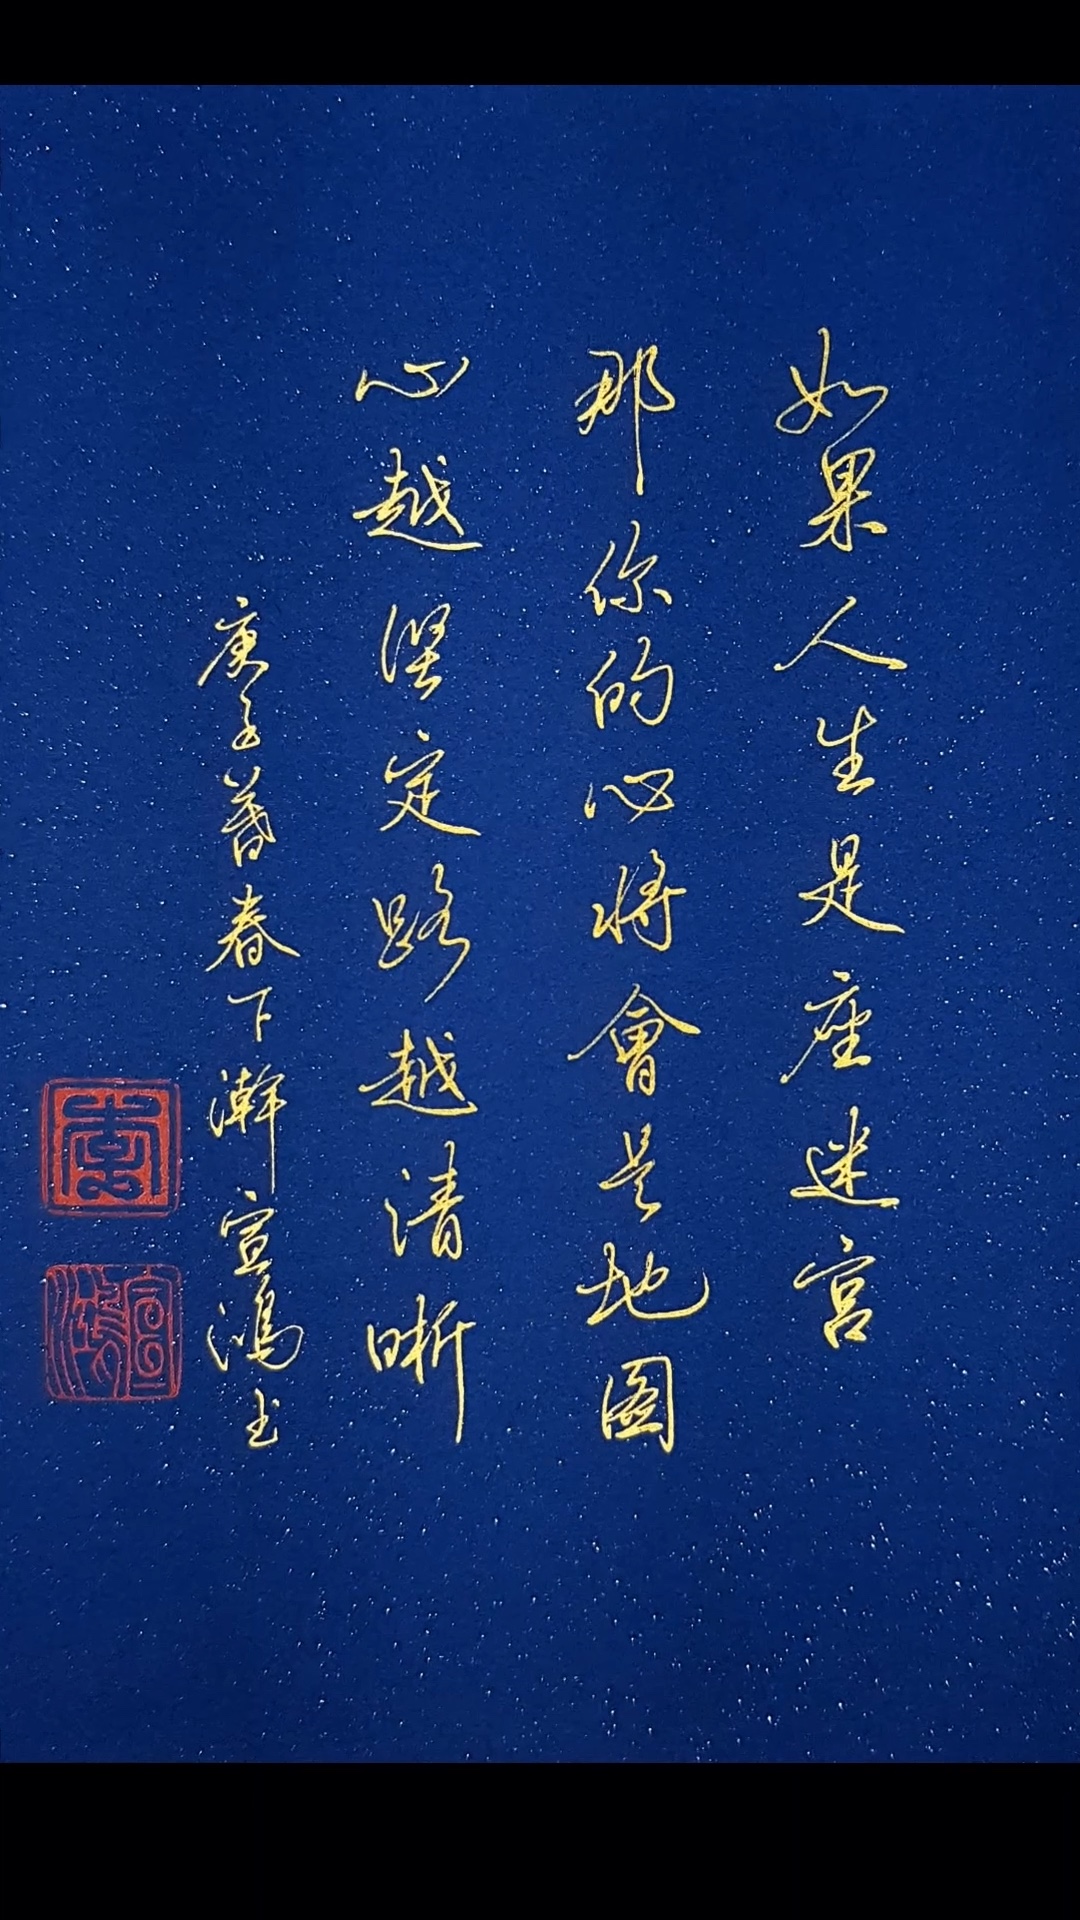 如果人生是座迷宮
那你的心將會是地图
心越坚定路越清晰
庚子暮春下澣宣鴻书
宣鴻